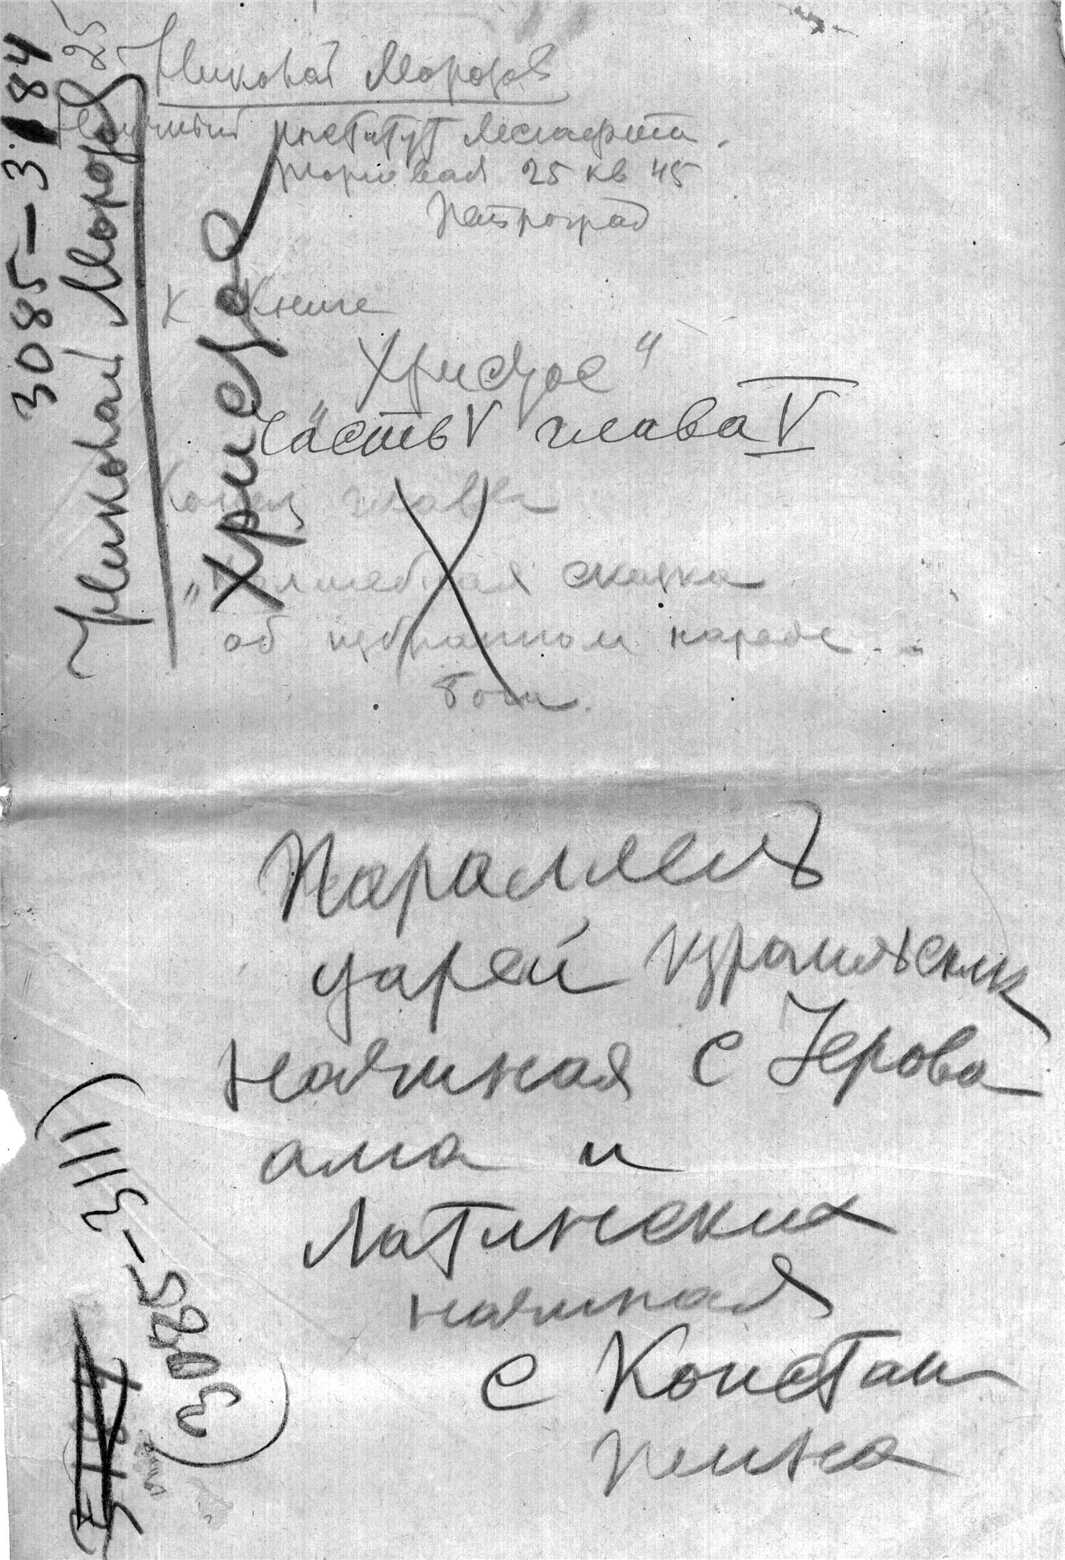 Николай Морозов
Научный институт Лесгафта.
Торговая 25 кв 45
Петроград
К книге
"Христос"
Часть V глава V
Конец главы
"Волшебная сказка
об избранном народе
бога.
Параллель
царей израильских
начиная с Иерово
ама и
Латинских
начиная
с Констан
тина
3085–3184
Николай Морозов
Христос
(3085–3111)